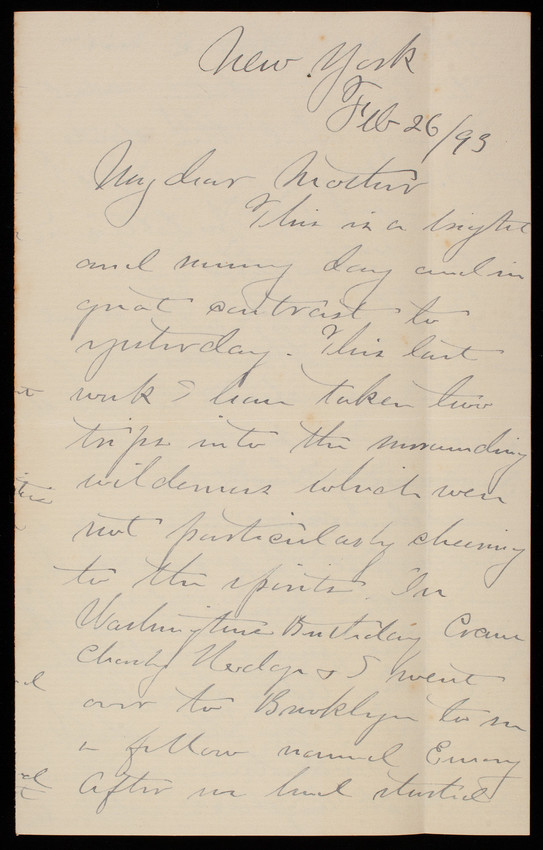 New York
Feb 26/93
My dear Mother
This is a bright
and sunny day and in
great contrast to
yesterday. This last
week I have taken two
trips into the surrounding
wilderness which were
not particularly cheering
to the spirits. On
Washingtons Birthday Crane
Charly & I went
over to Brooklyn to see
a fellow named Emory
After we had started